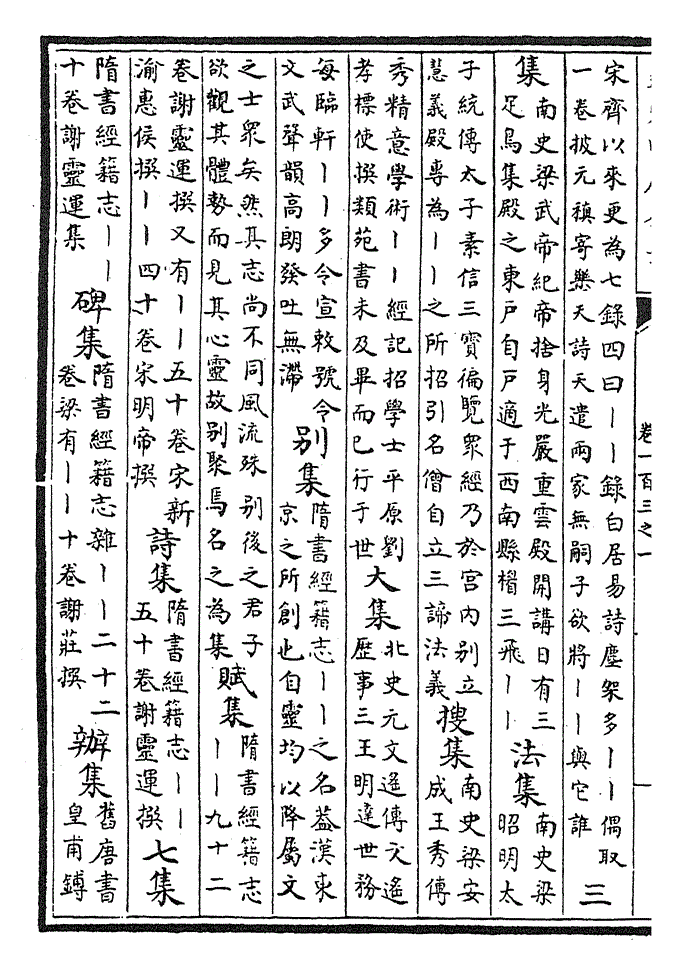 卷一百三之一
宋齊以來更為七錄四曰丨丨錄白居易詩塵架多丨丨偶取
一卷披元稹寄樂天詩天遣兩家無嗣子欲將丨丨與它誰
三
集
南史梁武帝紀帝捨身光嚴重雲殿開講日有三
足鳥集殿之東戶自戶適于西南縣楣三飛丨丨
法集
南史梁
昭明太
子統傳太子素信三寶徧覽衆經乃於宮内别立
慧義殿專為丨丨之所招引名僧自立三諦法義
搜集
南史梁安
成王秀傳
秀精意學術丨丨經記招學士平原劉
孝標使撰類苑書未及畢而已行于世
大集
北史元文遙傳文遙
歴事三王明達世務
每臨軒丨丨多令宣敕號令
文武聲韻高朗發吐無滯
别集
隋書經籍志丨丨之名蓋漢東
京之所創也自靈均以降屬文
之士衆矣然其志尚不同風流殊别後之君子
欲觀其體勢而見其心靈故别聚焉名之為集
賦集
隋書經籍志
丨丨九十二
卷謝靈運撰又有丨丨五十卷宋新
渝惠侯撰丨丨四十卷宋明帝撰
詩集
隋書經籍志丨丨
五十卷謝靈運撰
七集
隋書經籍志丨丨
十卷謝靈運集
碑集
隋書經籍志雜丨丨二十二
卷梁有丨丨十卷謝莊撰
辦集
舊唐書
皇甫鎛